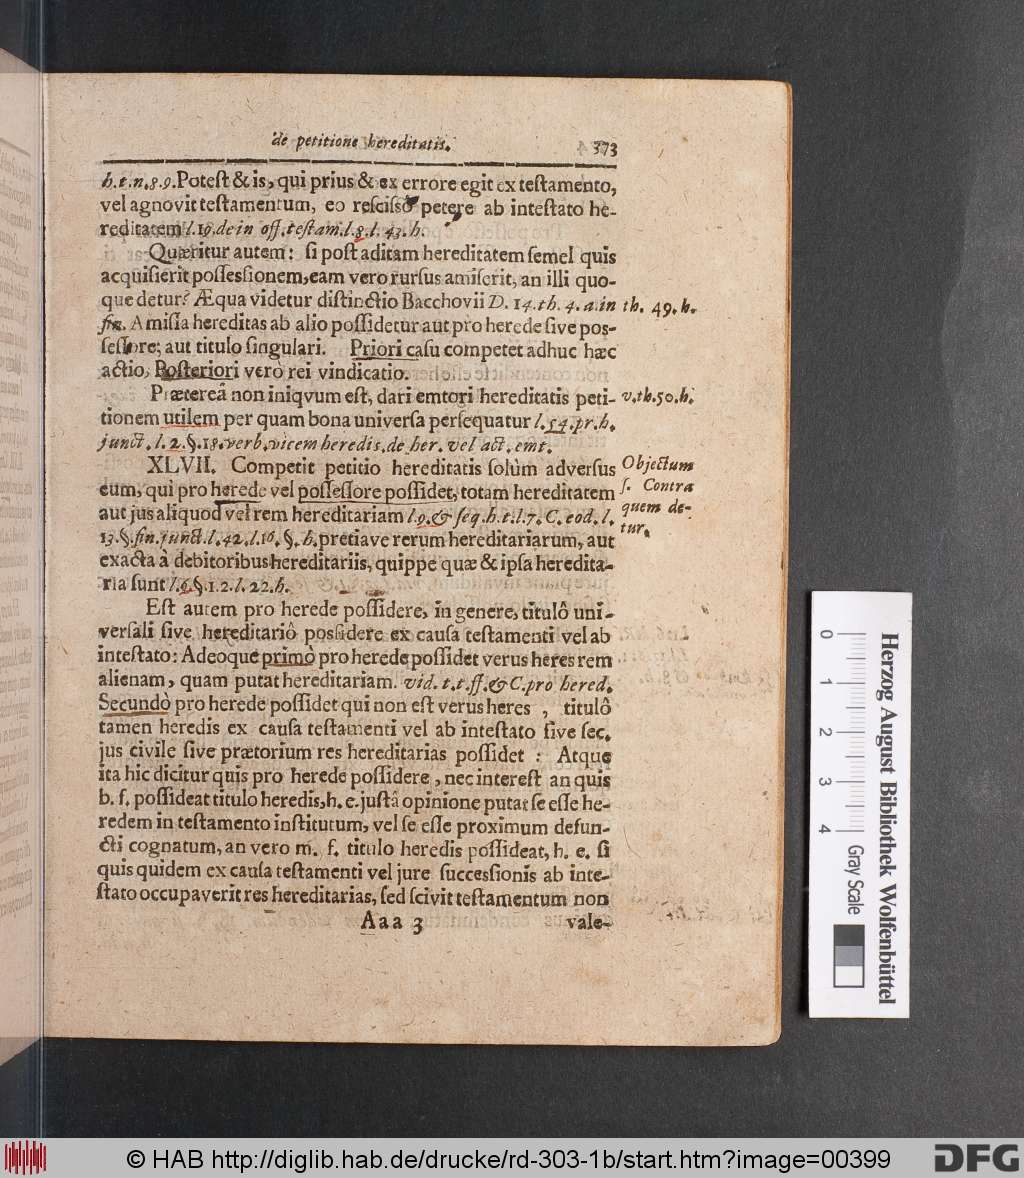 de petitione hereditatis. 373
h. t. n. 8. 9. Potest & is, qui prius & ex errore egit ex testamento,
vel agnovit testamentum, eo rescissô petere ab intestato he-
reditatem l. 19. de in off. testam. l. 8. l. 43. h.
Quæritur autem: si post aditam hereditatem semel quis
acquisierit possessionem, eam vero rursus amiserit, an illi quo-
que detur? Æqua videtur distinctio Bacchovii D. 14. th. 4. a. in
th. 49. h.
fin. Amissa hereditas ab alio possidetur aut pro herede sive pos-
sessore; aut titulo singulari. Priori casu competet adhuc hæc
actio, Posteriori vero rei vindicatio.
Præterea non iniqvum est, dari emtori hereditatis peti-
v. th. 50. h.
tionem utilem per quam bona universa persequatur l. 54. pr. h.
junct. l. 2. §. 18. verb. vicem heredis. de her. vel act. emt.
XLVII. Competit petitio hereditatis solùm adversus
Objectum
eum, qui pro herede vel possessore possidet, totam hereditatem
s. Contra
aut jus aliquod vel rem hereditariam l. 9. & seq. h. t. l. 7. C. eod. l.
quem de-
13. §. fin. junct. l. 42. l. 16. §. h. pretiave rerum hereditariarum, aut
tur.
exacta à debitoribus hereditariis, quippe quæ & ipsa heredita-
ria sunt l. 6. §. 1. 2. l. 22. h.
Est autem pro herede possidere, in genere, titulô uni-
versali sive hereditariô possidere ex causa testamenti vel ab
intestato: Adeoque primò pro herede possidet verus heres rem
alienam, quam putat hereditariam. vid. t. t. ff. & C. pro hered.
Secundò pro herede possidet qui non est verus heres, titulô
tamen heredis ex causa testamenti vel ab intestato sive sec.
jus civile sive prætorium res hereditarias possidet: Atque
ita hic dicitur quis pro herede possidere, nec interest an quis
b. f. possideat titulo heredis, h. e. justâ opinione putat se esse he-
redem in testamento institutum, vel se esse proximum defun-
cti cognatum, an vero m. f. titulo heredis possideat, h. e. si
quis quidem ex causa testamenti vel jure successionis ab inte-
stato occupaverit res hereditarias, sed scivit testamentum non
Aaa 3 vale-
0 1 2 3 4
Gray Scale
Herzog August Bibliothek Wolfenbüttel
© HAB http://diglib.hab.de/drucke/rd-303-1b/start.htm?image=00399
DFG